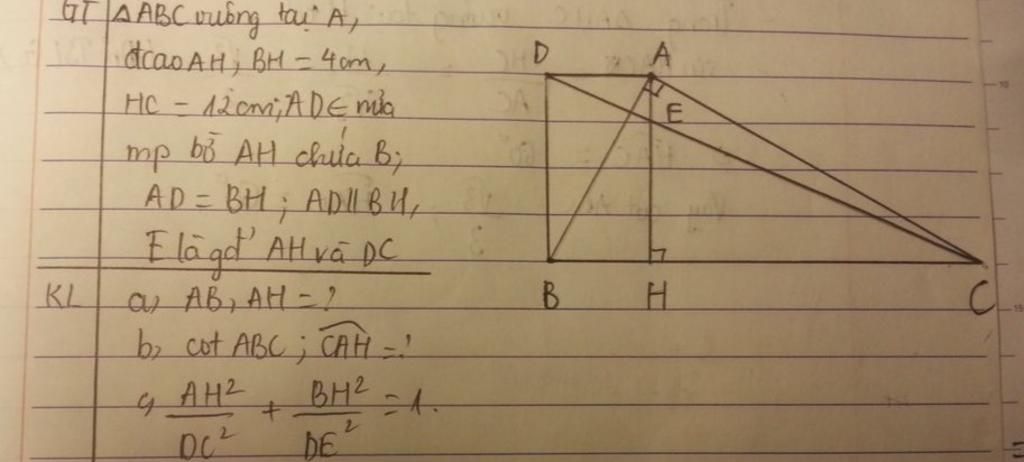 GT △ABC vuông tại A,
đcao AH; BH = 4cm,
HC = 12cm; AD ∈ nửa
mp bờ AH chứa B;
AD = BH; AD // BH,
E là gđ AH và DC
KL a, AB, AH = ?
b, cot ABC; \widehat{CAH} = ?
c, \frac{AH^2}{DC^2} + \frac{BH^2}{DE^2} = 1.
D A
E
B H C